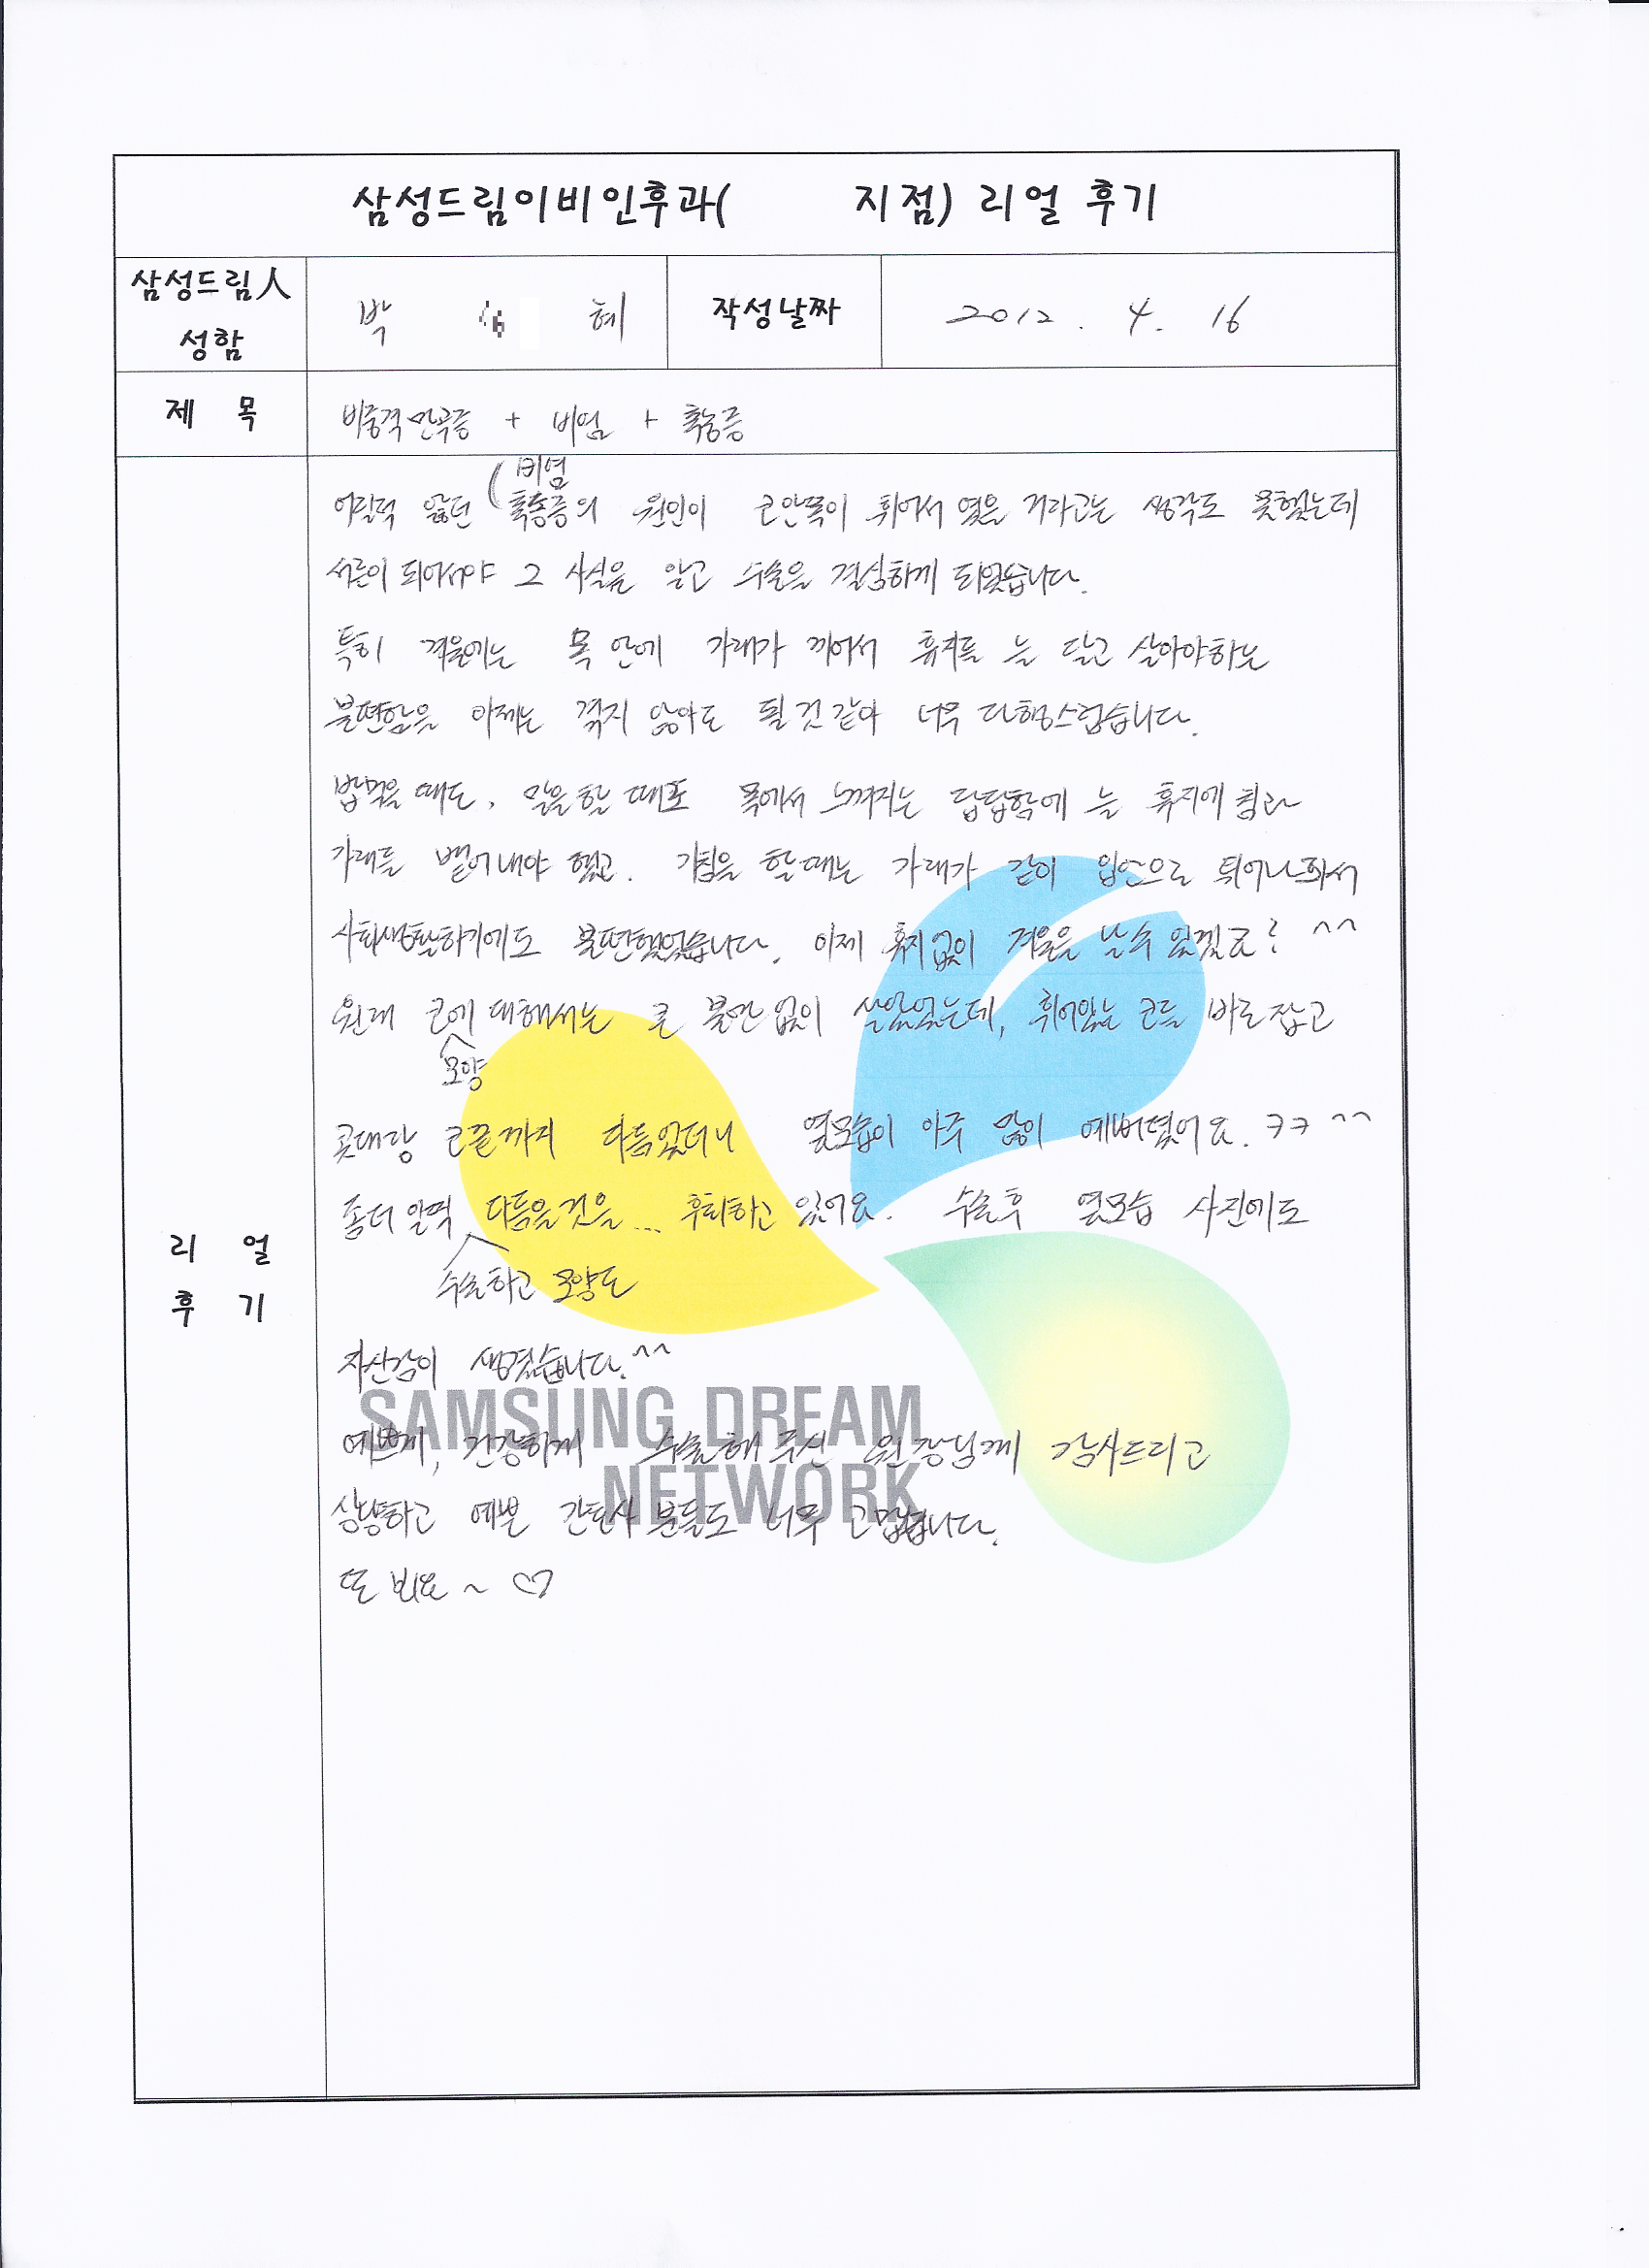 삼성드림이비인후과(          지점) 리얼 후기
삼성드림人
성함
박 혜
작성날짜
2012. 4. 16
제 목
비중격만곡증 + 비염 + 축농증
비염
어릴적 앓던 (축농증의 원인이 코안쪽이 휘어서 였을 거라고는 생각도 못했는데
서른이 되어서야 그 사실을 알고 수술을 결심하게 되었습니다.
특히 겨울에는 목 안에 가래가 끼어서 휴지를 늘 달고 살아야하는
불편함을 이제는 겪지 않아도 될 것 같아 너무 다행스럽습니다.
밥먹을 때도, 말을 할 때도 목에서 느껴지는 답답함에 늘 휴지에 침과
가래를 뱉어내야 했고. 기침을 할때는 가래가 같이 입안으로 튀어나와서
사회생활하기에도 불편했었습니다. 이제 휴지없이 겨울을 날수 있겠죠? ^^
원래 코에 대해서는 큰 불만 없이 살았었는데, 휘어있는 코를 바로잡고
모양
콧대랑 코끝까지 다듬었더니 옆모습이 아주 많이 예뻐졌어요. ㅋㅋ ^^
좀더 일찍 다듬을것을... 후회하고 있어요. 수술후 옆모습 사진에도
수술하고 모양도
자신감이 생겼습니다.^^
예쁘게, 건강하게 수술해 주신 원장님께 감사드리고
상냥하고 예쁜 간호사 분들도 너무 고맙습니다.
또 뵈요 ~ ♡
리 얼
후 기
SAMSUNG DREAM
NETWORK